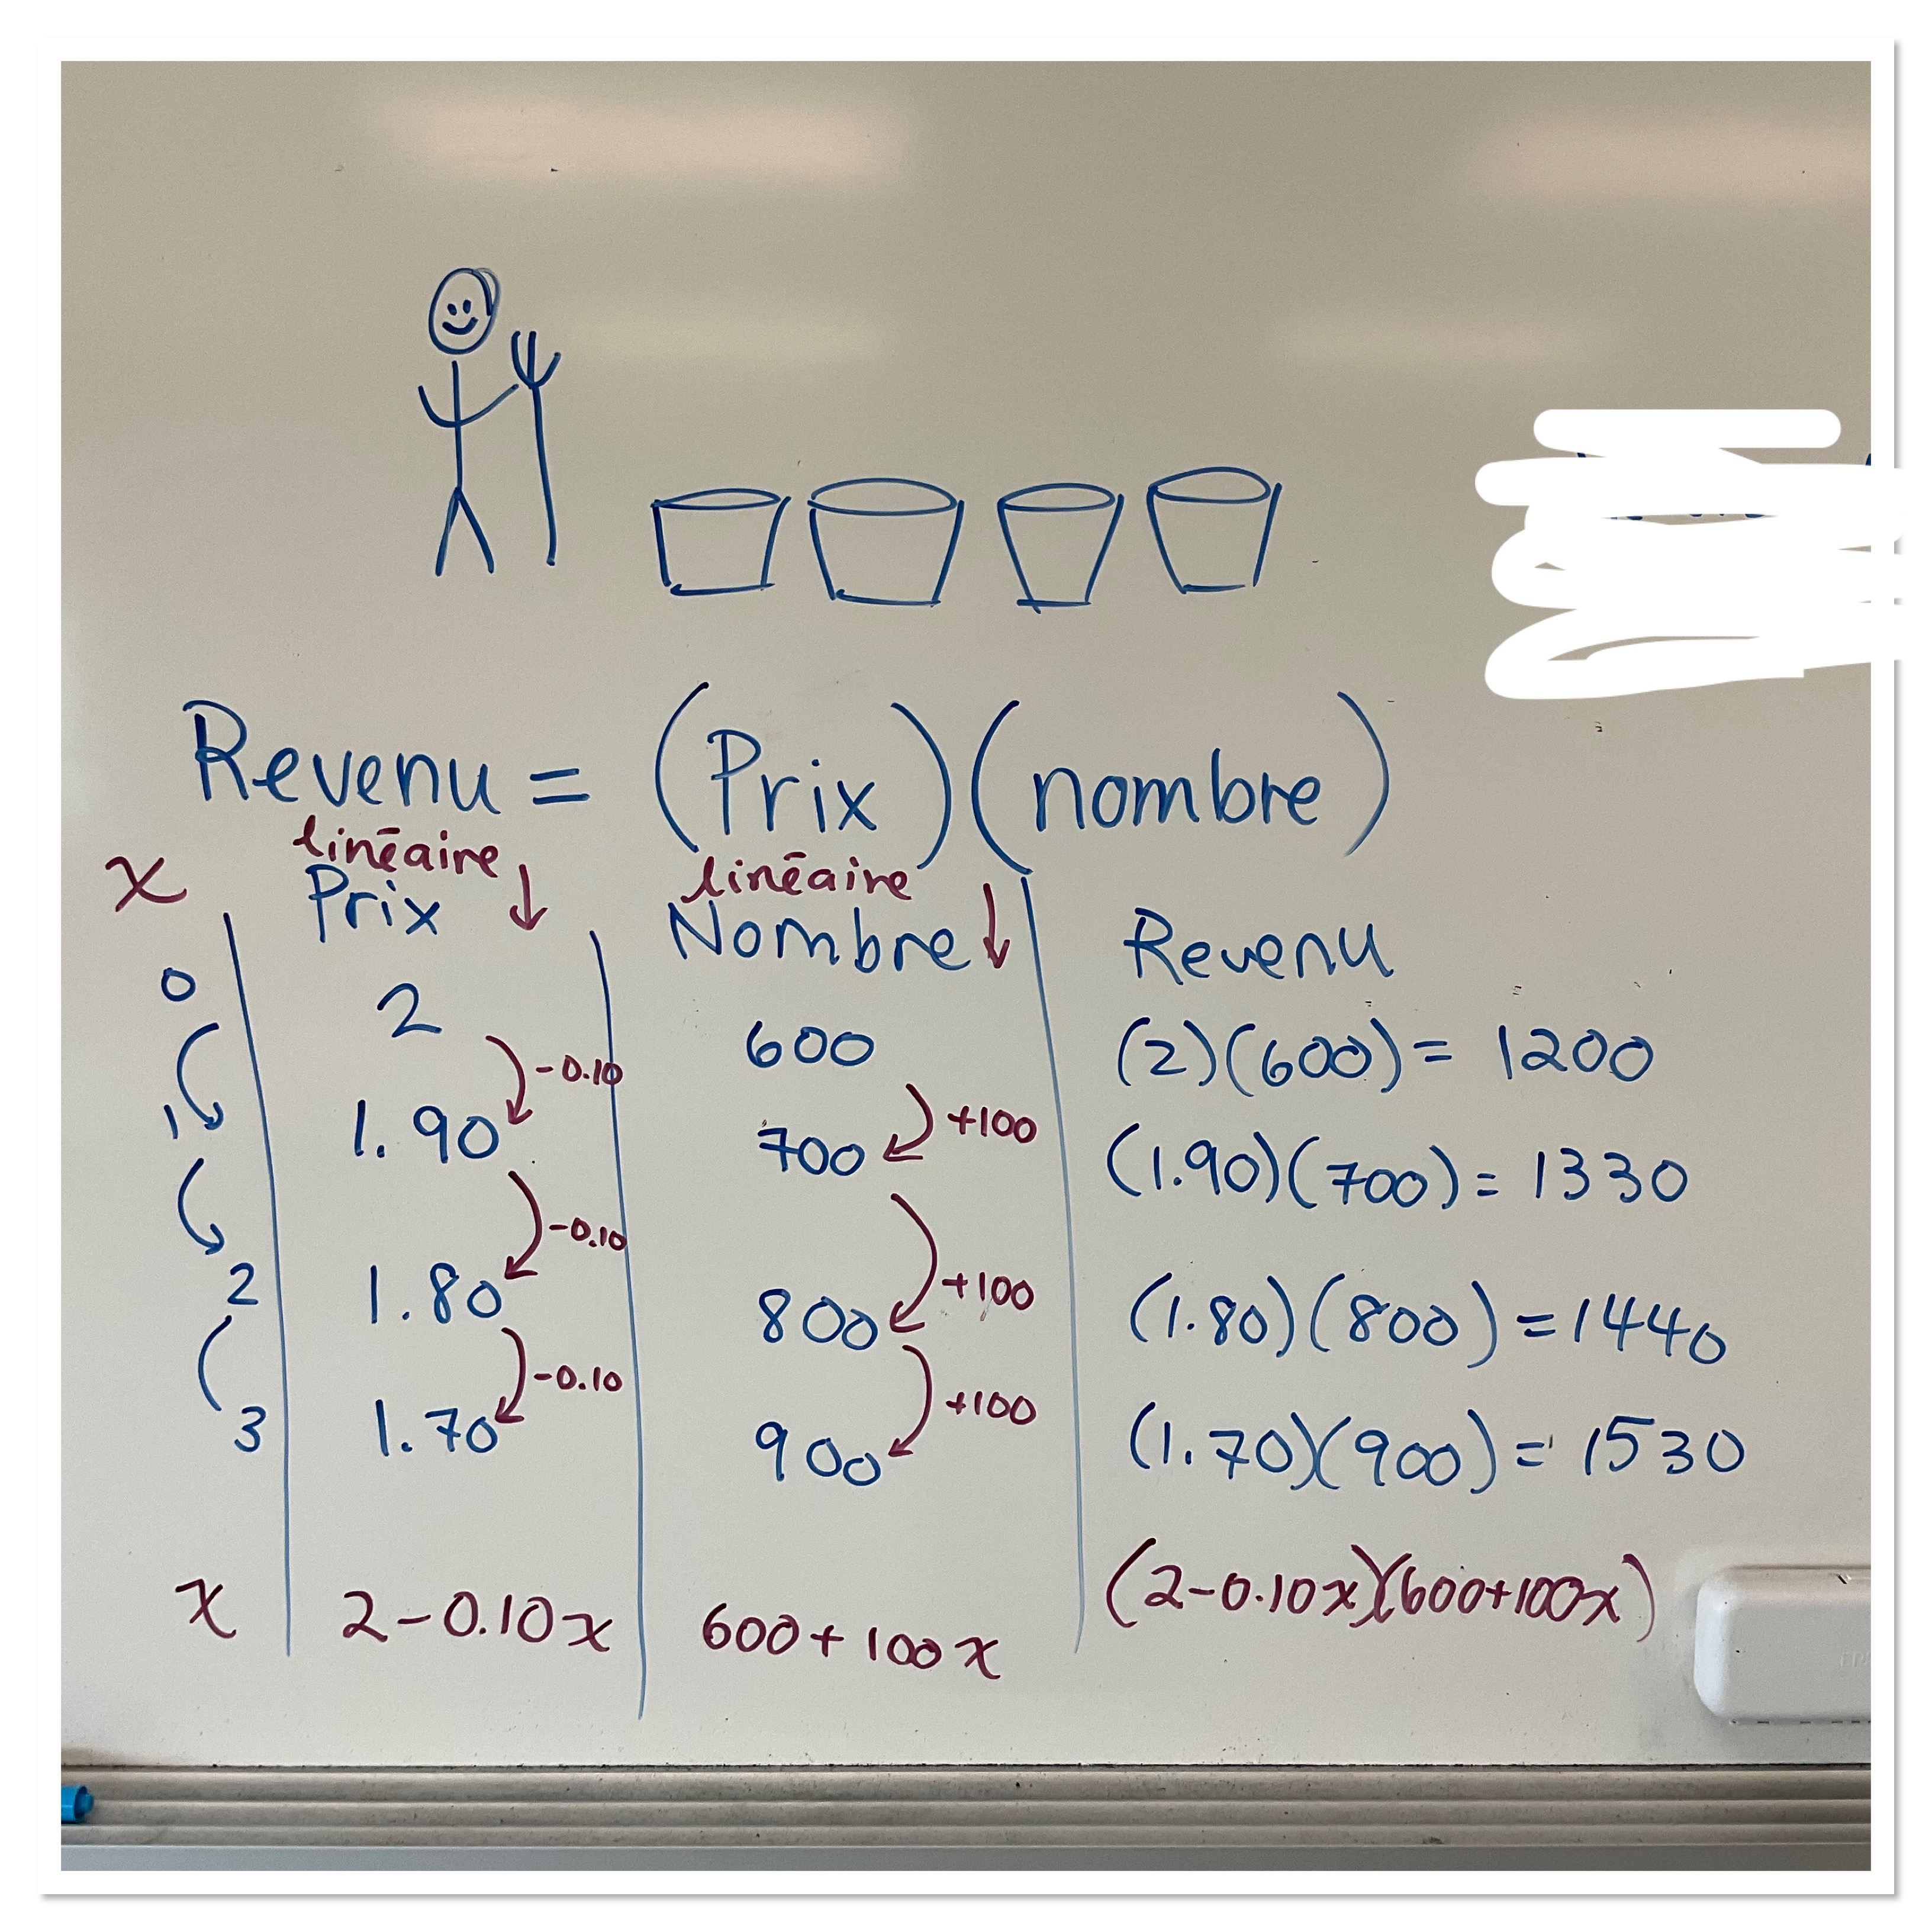 Revenu = (Prix)(nombre)
x linéaire Prix ↓ linéaire Nombre ↓ Revenu
0 2 600 (2)(600) = 1200
-0.10 +100
1 1.90 700 (1.90)(700) = 1330
-0.10 +100
2 1.80 800 (1.80)(800) = 1440
-0.10 +100
3 1.70 900 (1.70)(900) = 1530
x 2-0.10x 600+100x (2-0.10x)(600+100x)